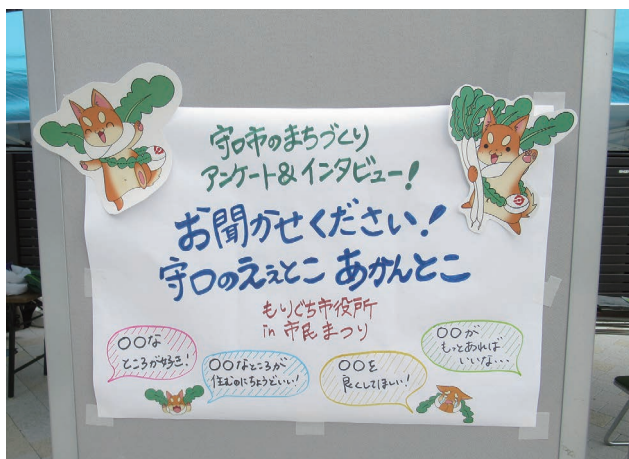 守口市のまちづくり
アンケート&インタビュー!
お聞かせください!
守口のええとこ あかんとこ
もりぐち市役所
in 市民まつり
○○な
ところが好き!
○○なところが
住むのにちょうどいい!
○○を
良くしてほしい!
○○が
もっとあれば
いいな…